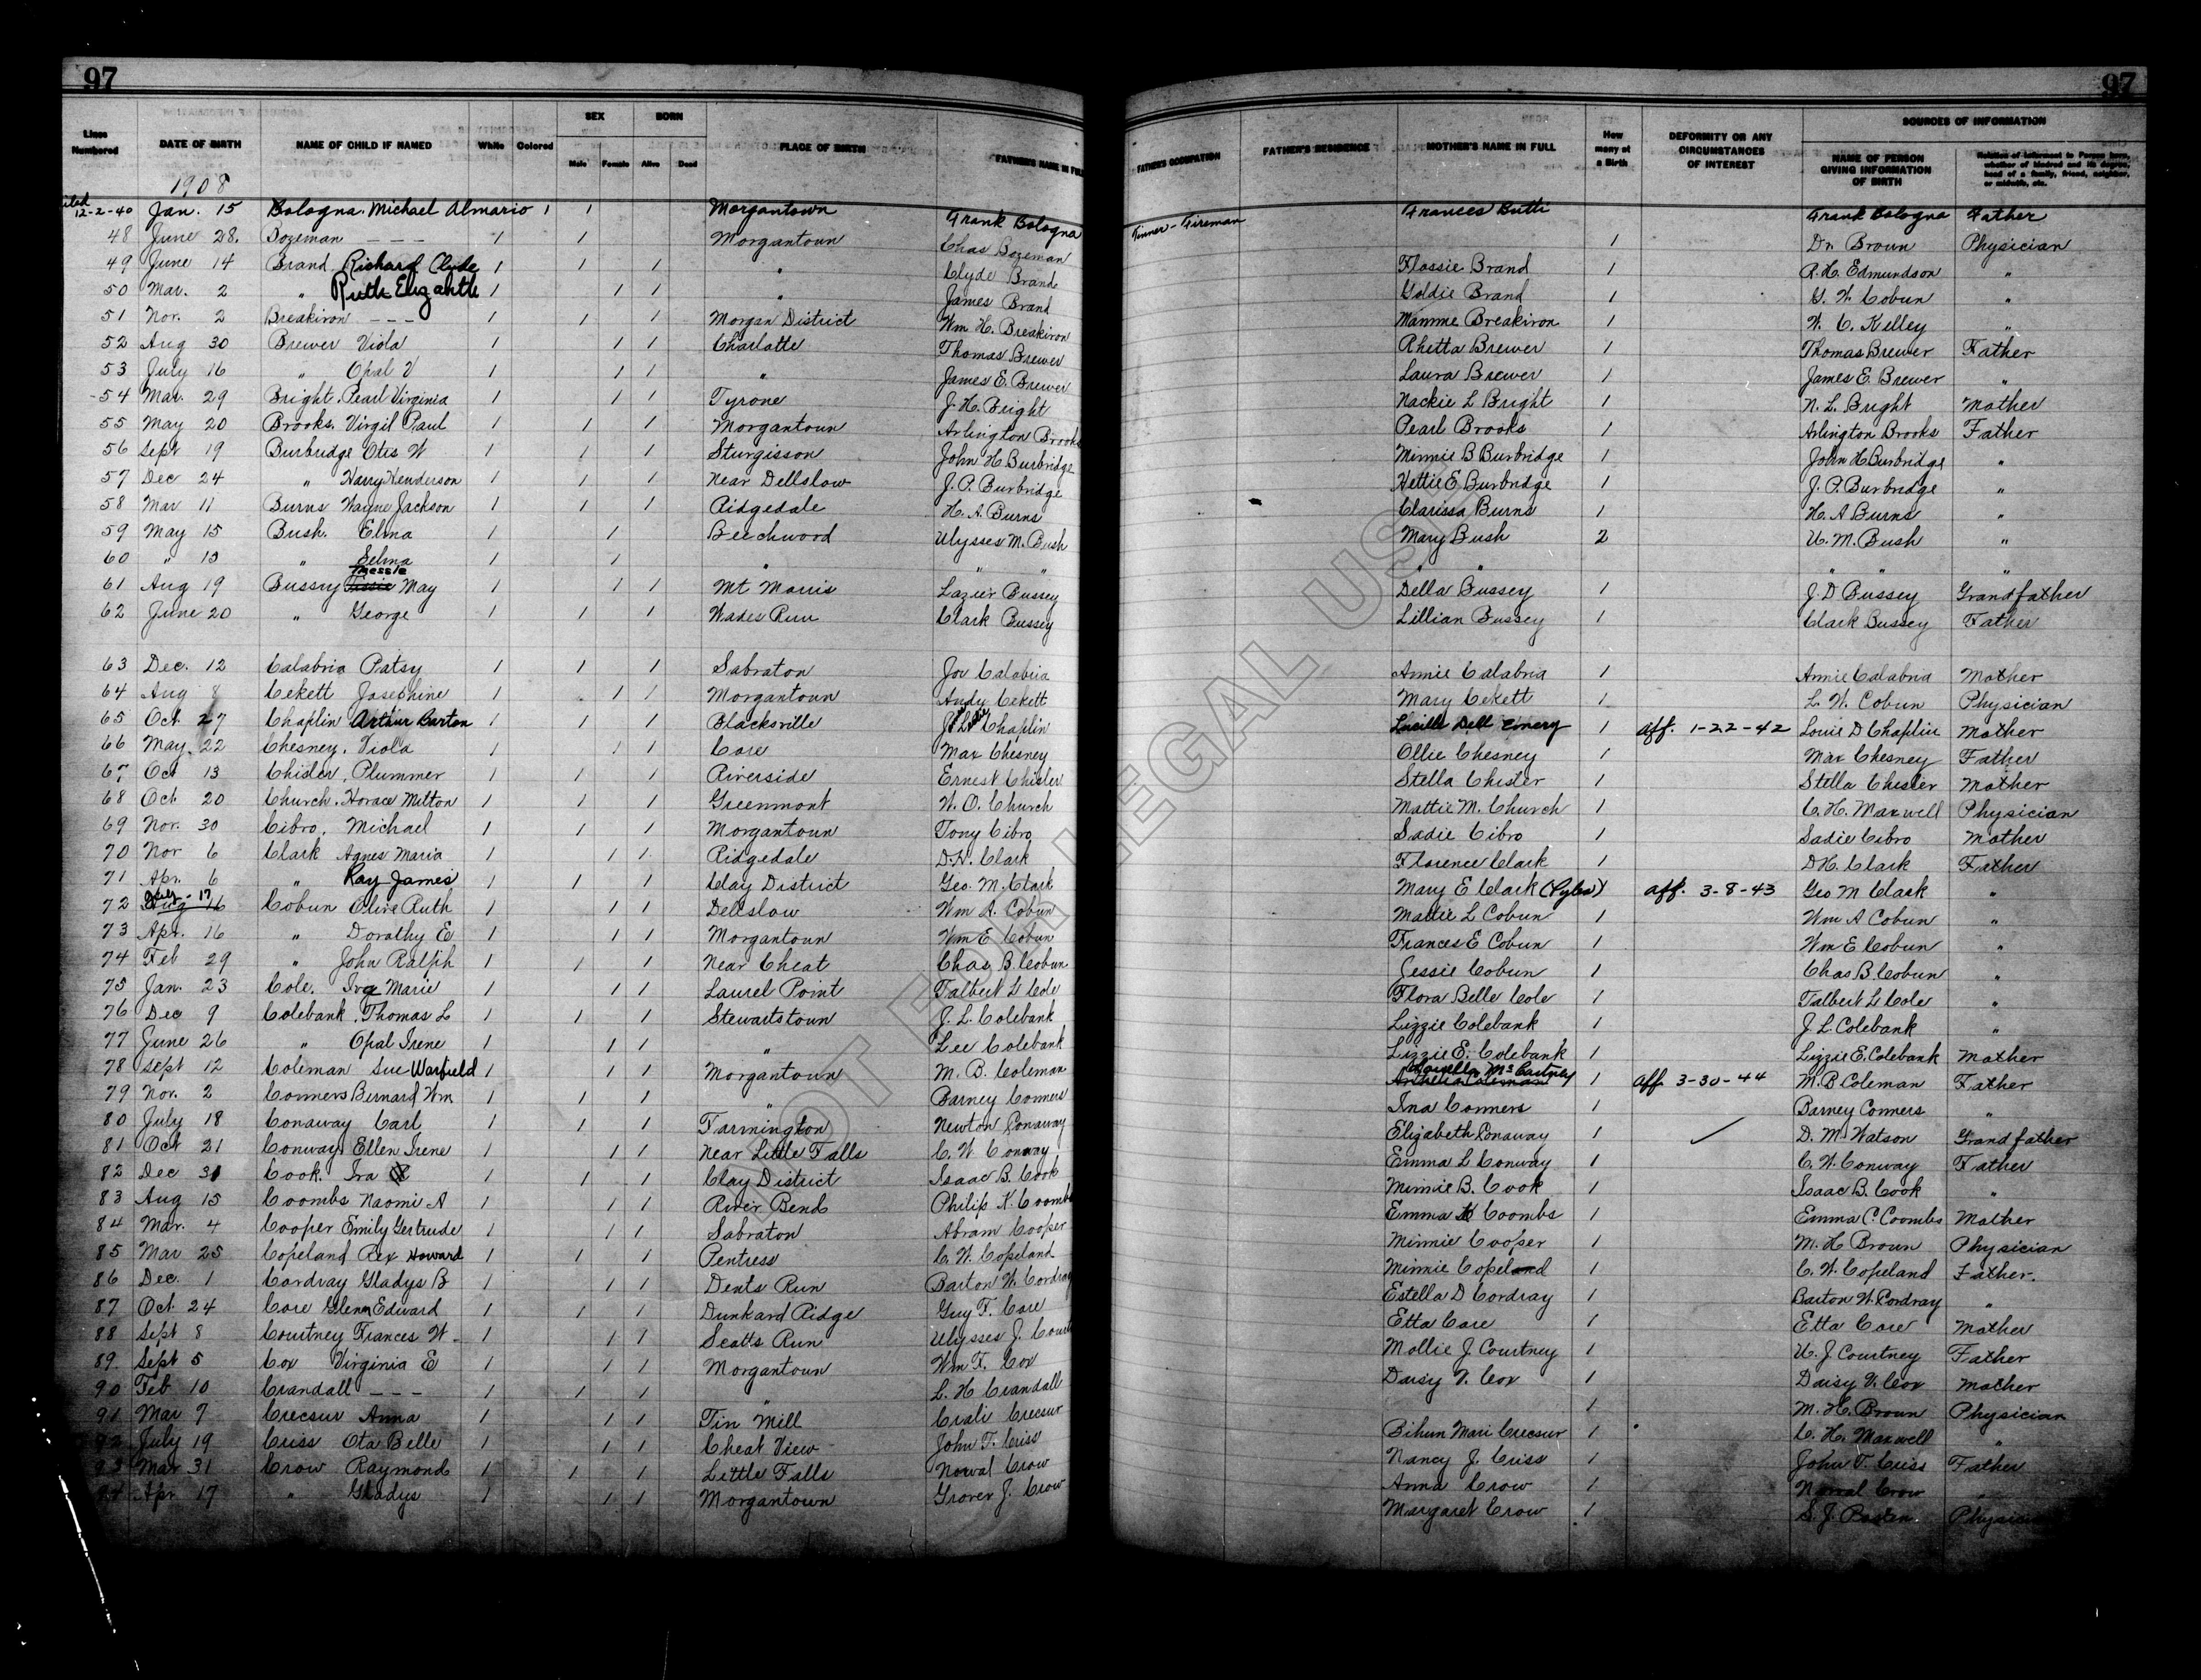 97 97
Lines Numbered DATE OF BIRTH NAME OF CHILD IF NAMED White Colored SEX Male Female BORN Alive Dead PLACE OF BIRTH FATHER'S NAME IN FULL FATHER'S OCCUPATION FATHER'S RESIDENCE MOTHER'S NAME IN FULL How many at a Birth DEFORMITY OR ANY CIRCUMSTANCES OF INTEREST SOURCES OF INFORMATION NAME OF PERSON GIVING INFORMATION OF BIRTH Relation of Informant to Person born, whether of kindred and its degree, head of a family, friend, neighbor, or midwife, etc.
1908
12-2-40 Jan. 15 Bologna. Michael Almario 1 1 Morgantown Frank Bologna Tinner - Fireman Frances Butti Frank Bologna Father
48 June 28. Bozeman - - - 1 1 Morgantown Chas Bozeman 1 Dr Brown Physician
49 June 14 Brand Richard Clyde 1 1 1 " Clyde Brand Flossie Brand 1 R. H. Edmundson "
50 Mar. 2 " Ruth Elizabeth 1 1 1 " James Brand Goldie Brand 1 G. W. Cobun "
51 Nov. 2 Breakiron - - - 1 1 1 Morgan District Wm H. Breakiron Mamme Breakiron 1 W. C. Kelley "
52 Aug 30 Brewer Viola 1 1 1 Charlotte Thomas Brewer Rhetta Brewer 1 Thomas Brewer Father
53 July 16 " Opal V 1 1 1 " James E. Brewer Laura Brewer 1 James E. Brewer "
54 Mar. 29 Bright. Pearl Virginia 1 1 1 Tyrone J. H. Bright Nackie L Bright 1 N. L. Bright Mother
55 May 20 Brooks. Virgil Paul 1 1 1 Morgantown Arlington Brooks Pearl Brooks 1 Arlington Brooks Father
56 Sept 19 Burbridge Otis W 1 1 1 Sturgisson John H Burbridge Minnie B Burbridge 1 John H Burbridge "
57 Dec 24 " Harry Henderson 1 1 1 Near Dellslow J. P. Burbridge Hettie E Burbridge 1 J. P. Burbridge "
58 Mar 11 Burns Wayne Jackson 1 1 1 Ridgedale H. A. Burns Clarissa Burns 1 H. A Burns "
59 May 15 Bush. Elma 1 1 Beechwood Ulysses M. Bush Mary Bush 2 U. M. Bush "
60 " 15 " Selma 1 1 " " " " " " " "
61 Aug 19 Bussey Messie May 1 1 1 Mt Morris Lazier Bussey Della Bussey 1 J. D Bussey Grandfather
62 June 20 " George 1 1 1 Wades Run Clark Bussey Lillian Bussey 1 Clark Bussey Father
63 Dec. 12 Calabria Patsy 1 1 1 Sabraton Joe Calabria Annie Calabria 1 Annie Calabria Mother
64 Aug 8 Cekett Josephine 1 1 1 Morgantown Andy Cekett Mary Cekett 1 L. W. Cobun Physician
65 Oct 27 Chaplin Arthur Barton 1 1 1 Blacksville Chaplin Lucille Dell Emery 1 aff. 1-22-42 Louie D Chaplin Mother
66 May 22 Chesney. Viola 1 1 1 Core Max Chesney Ollie Chesney 1 Max Chesney Father
67 Oct 13 Chisler, Plummer 1 1 1 Riverside Ernest Chisler Stella Chisler 1 Stella Chisler Mother
68 Oct 20 Church. Horace Milton 1 1 1 Greenmont W. O. Church Mattie M. Church 1 C. H. Maxwell Physician
69 Nov. 30 Cibro. Michael 1 1 1 Morgantown Tony Cibro Sadie Cibro 1 Sadie Cibro Mother
70 Nov 6 Clark Agnes Maria 1 1 1 Ridgedale D. H. Clark Florence Clark 1 D H. Clark Father
71 Apr. 6 " Ray James 1 1 1 Clay District Geo. M. Clark Mary E Clark (Pyles) 1 aff. 3-8-43 Geo M Clark "
72 Aug 16 July - 17 Cobun Olive Ruth 1 1 1 Dellslow Wm A. Cobun Mattie L Cobun 1 Wm A Cobun "
73 Apr. 16 " Dorathy E 1 1 1 Morgantown Wm E Cobun Frances E Cobun 1 Wm E Cobun "
74 Feb 29 " John Ralph 1 1 1 Near Cheat Chas B. Cobun Jessie Cobun 1 Chas B. Cobun "
75 Jan. 23 Cole. Iva Marie 1 1 1 Laurel Point Talbert L Cole Flora Belle Cole 1 Talbert L Cole "
76 Dec 9 Colebank. Thomas L 1 1 1 Stewartstown J. L. Colebank Lizzie Colebank 1 J. L. Colebank "
77 June 26 " Opal Irene 1 1 1 " Lee Colebank Lizzie E. Colebank 1 Lizzie E. Colebank Mother
78 Sept 12 Coleman Sue Warfield 1 1 1 Morgantown M. B. Coleman McCartney 1 aff. 3-30-44 M. B Coleman Father
79 Nov. 2 Conners Bernard Wm 1 1 1 " Barney Conners Ina Conners 1 Barney Conners "
80 July 18 Conaway Carl 1 1 1 Farmington Newton Conaway Elizabeth Conaway 1 ✓ D. M. Watson Grandfather
81 Oct 21 Conway Ellen Irene 1 1 1 Near Little Falls C. W. Conway Emma L Conway 1 C. W. Conway Father
82 Dec 31 Cook. Ira 1 1 1 Clay District Isaac B. Cook Minnie B. Cook 1 Isaac B. Cook "
83 Aug 15 Coombs Naomi A 1 1 1 River Bend Philip K. Coombs Emma Coombs 1 Emma C. Coombs Mother
84 Mar. 4 Cooper Emily Gertrude 1 1 1 Sabraton Abram Cooper Minnie Cooper 1 M. H Brown Physician
85 Mar 25 Copeland Rex Howard 1 1 1 Pentress C. W. Copeland Minnie Copeland 1 C. W. Copeland Father.
86 Dec. 1 Cordray Gladys B 1 1 1 Dents Run Barton W. Cordray Estella D Cordray 1 Barton W. Cordray "
87 Oct. 24 Core Glenn Edward 1 1 1 Dunkard Ridge Guy F. Core Etta Core 1 Etta Core Mother
88 Sept 8 Courtney Frances W. 1 1 1 Scotts Run Ulysses J. Court Mollie J Courtney 1 U. J Courtney Father
89. Sept 5 Cox Virginia E 1 1 1 Morgantown Wm F. Cox Daisy V. Cox 1 Daisy V. Cox Mother
90 Feb 10 Crandall - - - 1 1 1 " L. H Crandall 1 M. H. Brown Physician
91 Mar 7 Crecsur Anna 1 1 1 Tin Mill Crali Crecsur Bihun Mari Crecsur 1 C. H. Maxwell "
92 July 19 Criss Ota Belle 1 1 1 Cheat View John T. Criss Nancy J. Criss 1 John T. Criss Father
93 Mar 31 Crow Raymond 1 1 1 Little Falls Norval Crow Anna Crow 1 Norval Crow
94 Apr 17 " Gladys 1 1 1 Morgantown Grover J. Crow Margaret Crow 1 S. J. Physician
NOT FOR LEGAL USE